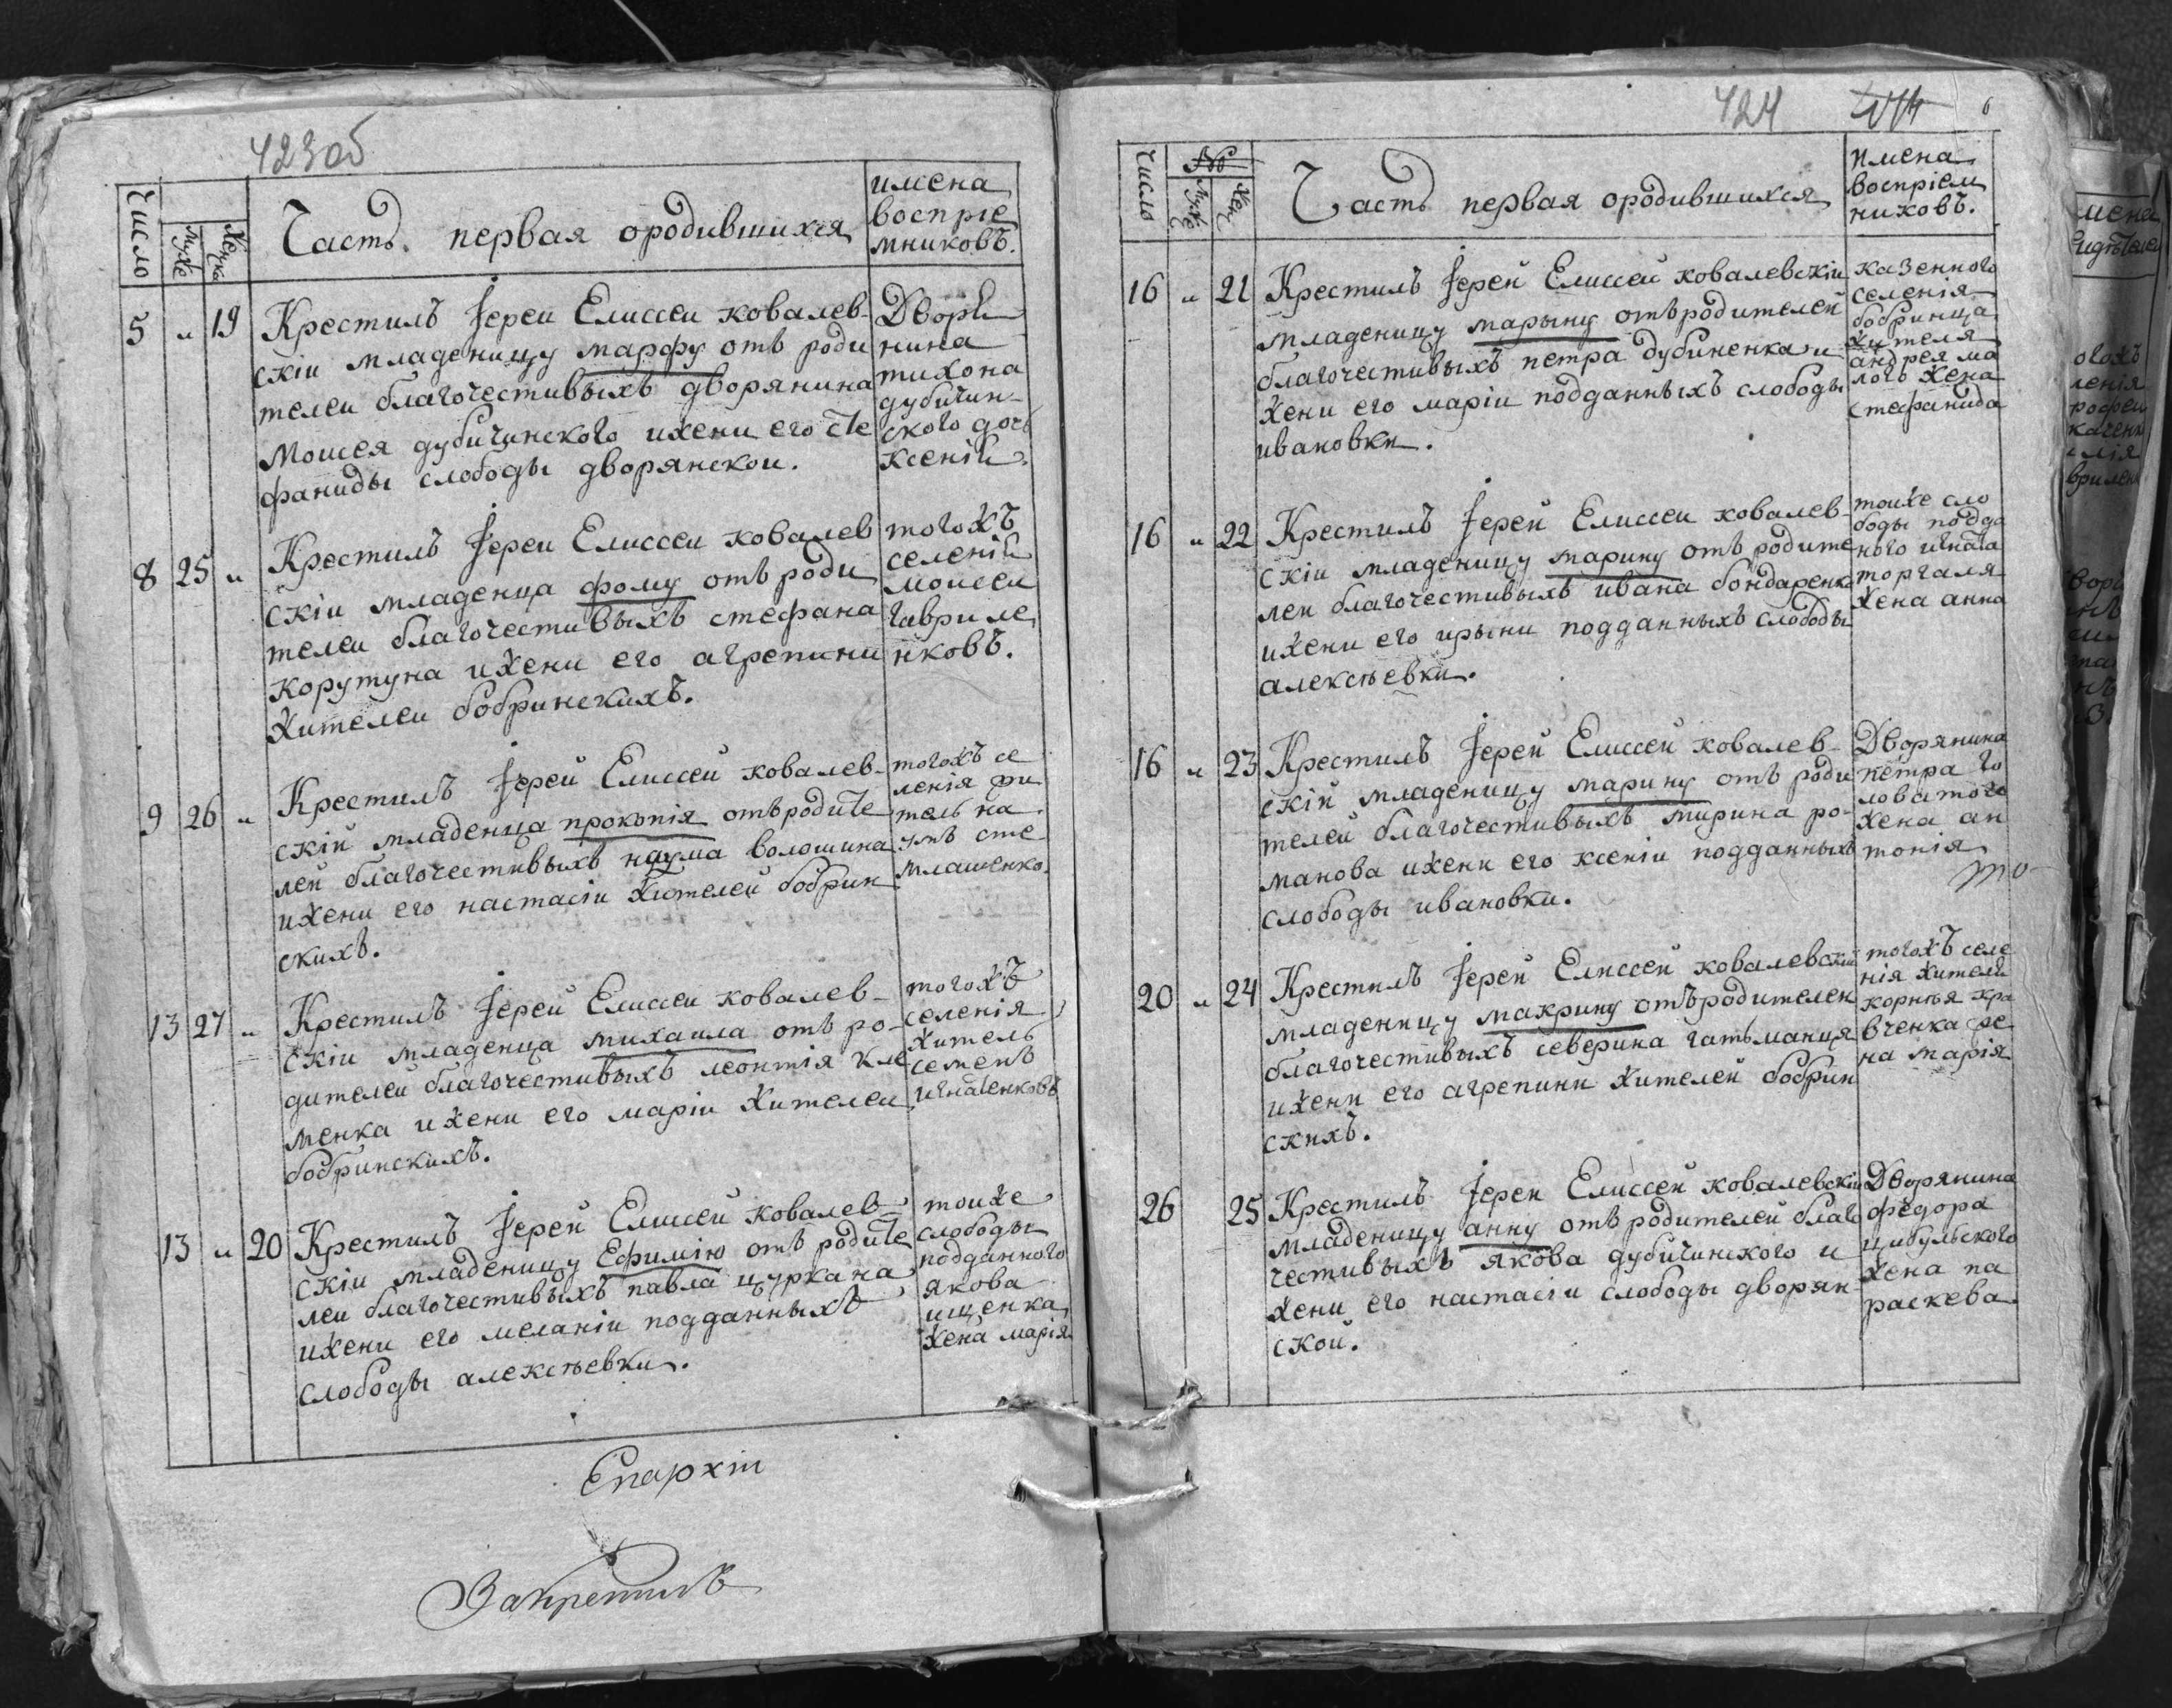 423об
Число
Муже
Женска
Часть первая ородившихся
имена
воспріе
мниковъ.
5 " 19
Крестилъ Іереи Елиссеи ковалев-
скіи младеницу марфу отъ роди
телеи благочестивыхъ дворянина
Моисея дубичинского ижени его сте
фаниды слободы дворянскои.
Дворя
нина
тихона
дубичин-
ского дочь
ксеніи
8 25 "
Крестилъ Іереи Елиссеи ковалев
скіи младенца фому отъ роди
телеи благочестивыхъ стефана
корутуна ижени его агрепини
жителеи бобринскихъ.
тогожъ
селенія
моисеи
гавриле
нковъ.
9 26 "
Крестилъ Іерей Елиссей ковалев-
скій младенца прокопія отъродите
лей благочестивыхъ наума волошина
ижени его настасіи жителей бобрин
скихъ.
тогожъ се
ленія жи
тель на
умъ сте
млашенко.
13 27 "
Крестилъ Іерей Елиссеи ковалев-
скіи младенца михаила отъ ро-
дителей благочестивыхъ леонтія кле
менка ижени его маріи жителеи
бобринскихъ.
тогожъ
селенія
житель
семенъ
игнатенковъ
13 " 20
Крестилъ Іерей Елиссей ковалев-
скіи младеницу Ефимію отъ родите
леи благочестивыхъ павла цуркана
ижени его меланіи подданныхъ
слободы алексѣевки.
тоиже
слободы
подданного
якова
ищенка
жена марія
Епархіи
424
6
Число
№
Муже
Жен
Часть первая ородившихся
имена
воспріем
никовъ.
16 " 21
Крестилъ Іерей Елиссеи ковалевскіи
младеницу марыну отъродителей
благочестивыхъ петра дубиненка и
жени его маріи подданныхъ слободы
ивановки.
казенного
селенія
бобринца
жителя
андрея ма
лого жена
стефанида
16 " 22
Крестилъ Іерей Елиссеи ковалев-
скіи младеницу марину отъ родите
леи благочестивыхъ ивана бондаренка
ижени его ирыни подданныхъ слободы
алексѣевки.
тоиже сло
боды подда
ного игната
торгаля
жена анна
16 " 23
Крестилъ Іерей Елиссей ковалев-
скій младеницу марину отъ роди
телей благочестивыхъ мирина ро-
манова ижени его ксеніи подданныхъ
слободы ивановки.
Дворянина
петра го
ловатого
жена ан
тонія
то-
20 " 24
Крестилъ Іерей Елиссей ковалевский
младеницу макрину отъродителеи
благочестивыхъ северина гатьманця
ижени его агрепини жителей бобрин
скихъ.
тогожъ селе
нія жителя
корнѣя кра
вченка же
на марія
26 25
Крестилъ Іереи Елиссей ковалевскіи
младеницу анну отъ родителей благо
честивыхъ якова дубичинского и
жени его настасіи слободы дворян-
ской.
Дворянина
федора
цибульского
жена па
раскева